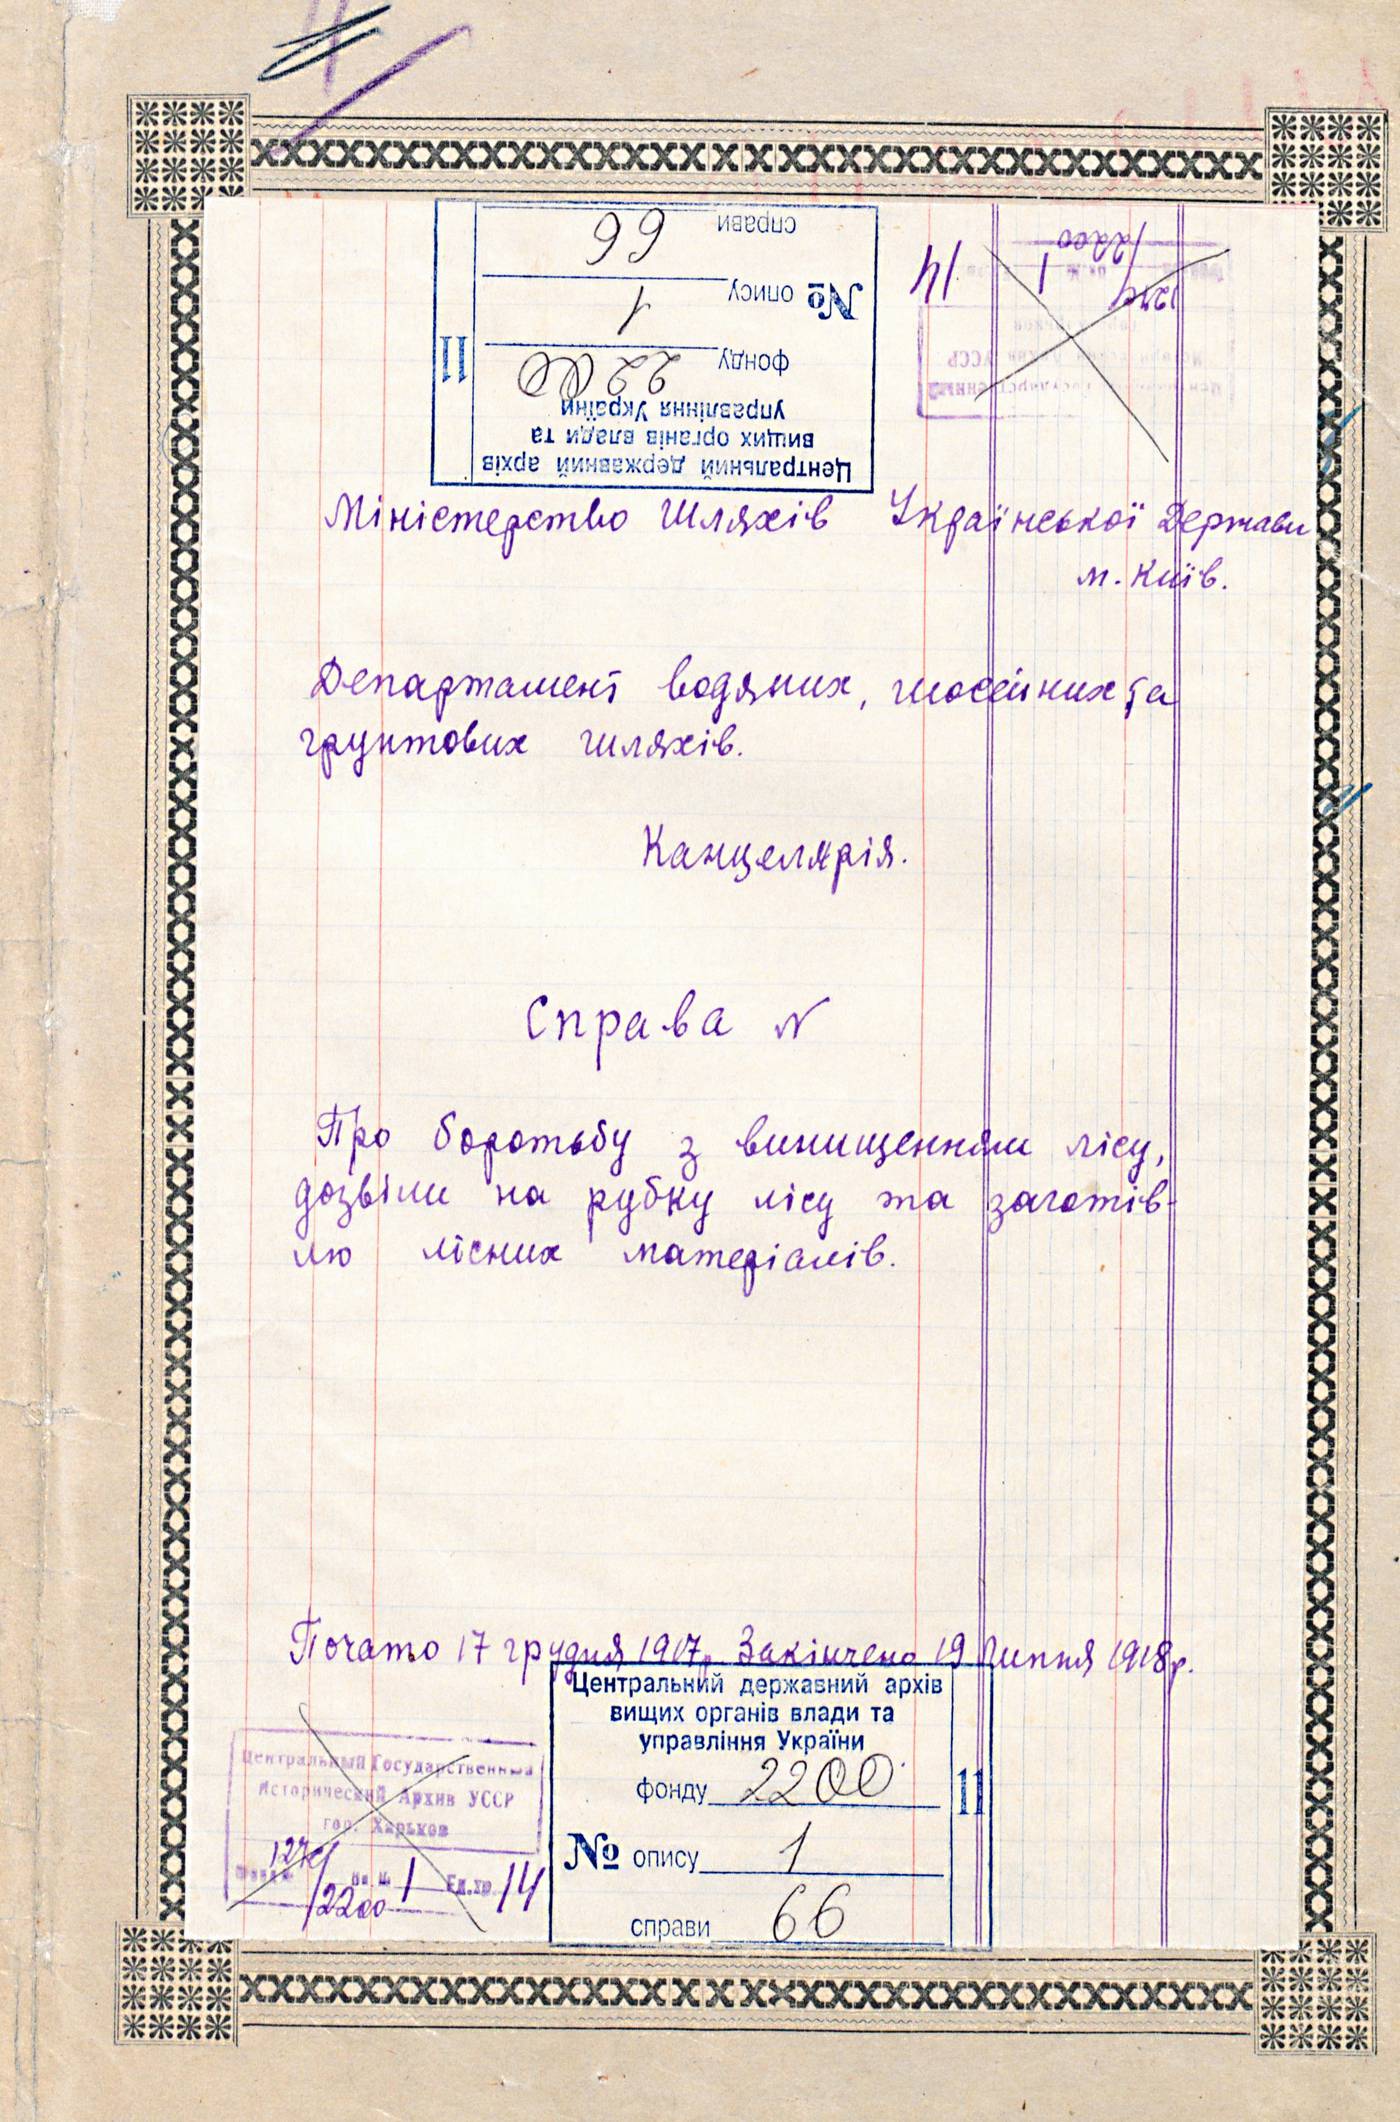 справи 66
№ опису 1
фонду 2200
11
Центральний державний архів
вищих органів влади та
управління України
14
1
2200
Міністерство Шляхів Української Держави
м. Київ.
Департамент водяних, шосейних та
грунтових шляхів.
Канцелярія.
Справа N
Про боротьбу з винищенням лісу,
дозвіли на рубку лісу та заготів-
лю лісних матеріалів.
Почато 17 грудня 1917р. Закінчено 19 липня 1918р.
Центральний державний архів
вищих органів влади та
управління України
фонду 2200
11
№ опису 1
справи 66
Центральный Государственный
Исторический Архив УССР
гор. Харьков
1
Ед.хр. 14
2200